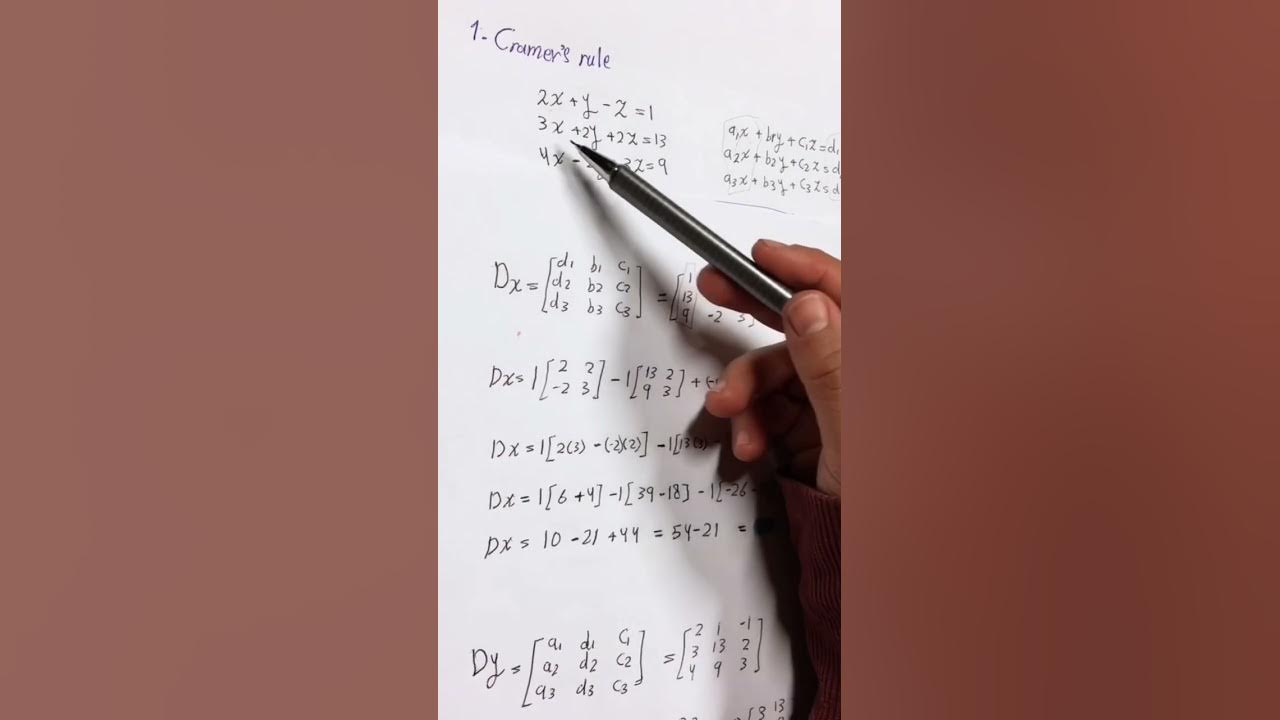 1. Cramer's rule
2x + y - z = 1
3x + 2y + 2z = 13
4x - z = 9
a1x + b1y + c1z = d1
a2x + b2y + c2z = d
a3x + b3y + c3z = d
Dx = [d1 b1 c1] = [1
d2 b2 c2 13
d3 b3 c3] 9 -2 3]
Dx = 1[2 2 -2 3] - 1[13 2 9 3] + (-
Dx = 1[2(3) - (-2)(2)] - 1[13(3) -
Dx = 1[6 + 4] - 1[39 - 18] - 1[-26 -
Dx = 10 - 21 + 44 = 54 - 21 =
Dy = [a1 d1 c1] = [2 1 -1]
a2 d2 c2 3 13 2
a3 d3 c3] 4 9 3]
[3 13